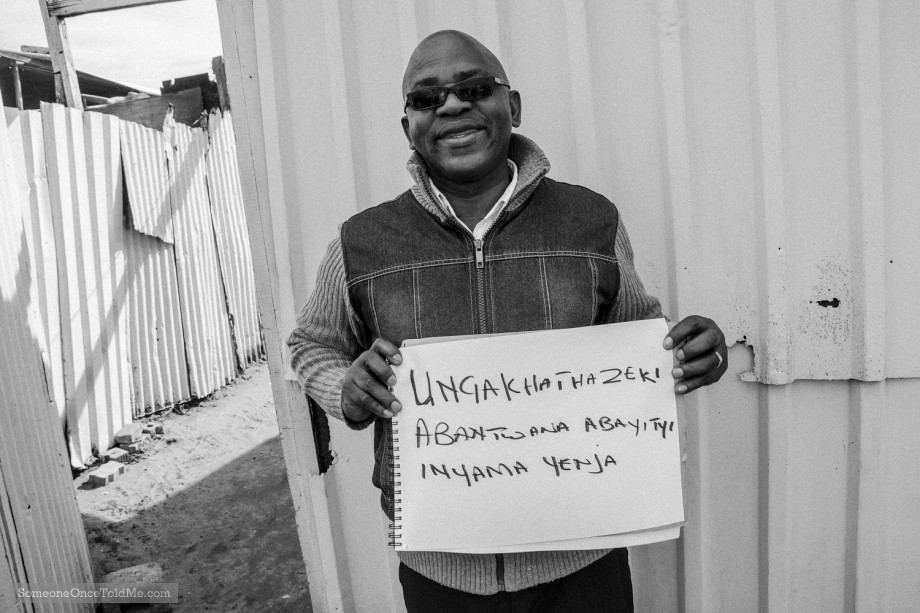 UNGAKHATHAZEKI
ABANTWANA ABAYITYI
INYAMA YENJA
SomeoneOnceToldMe.com